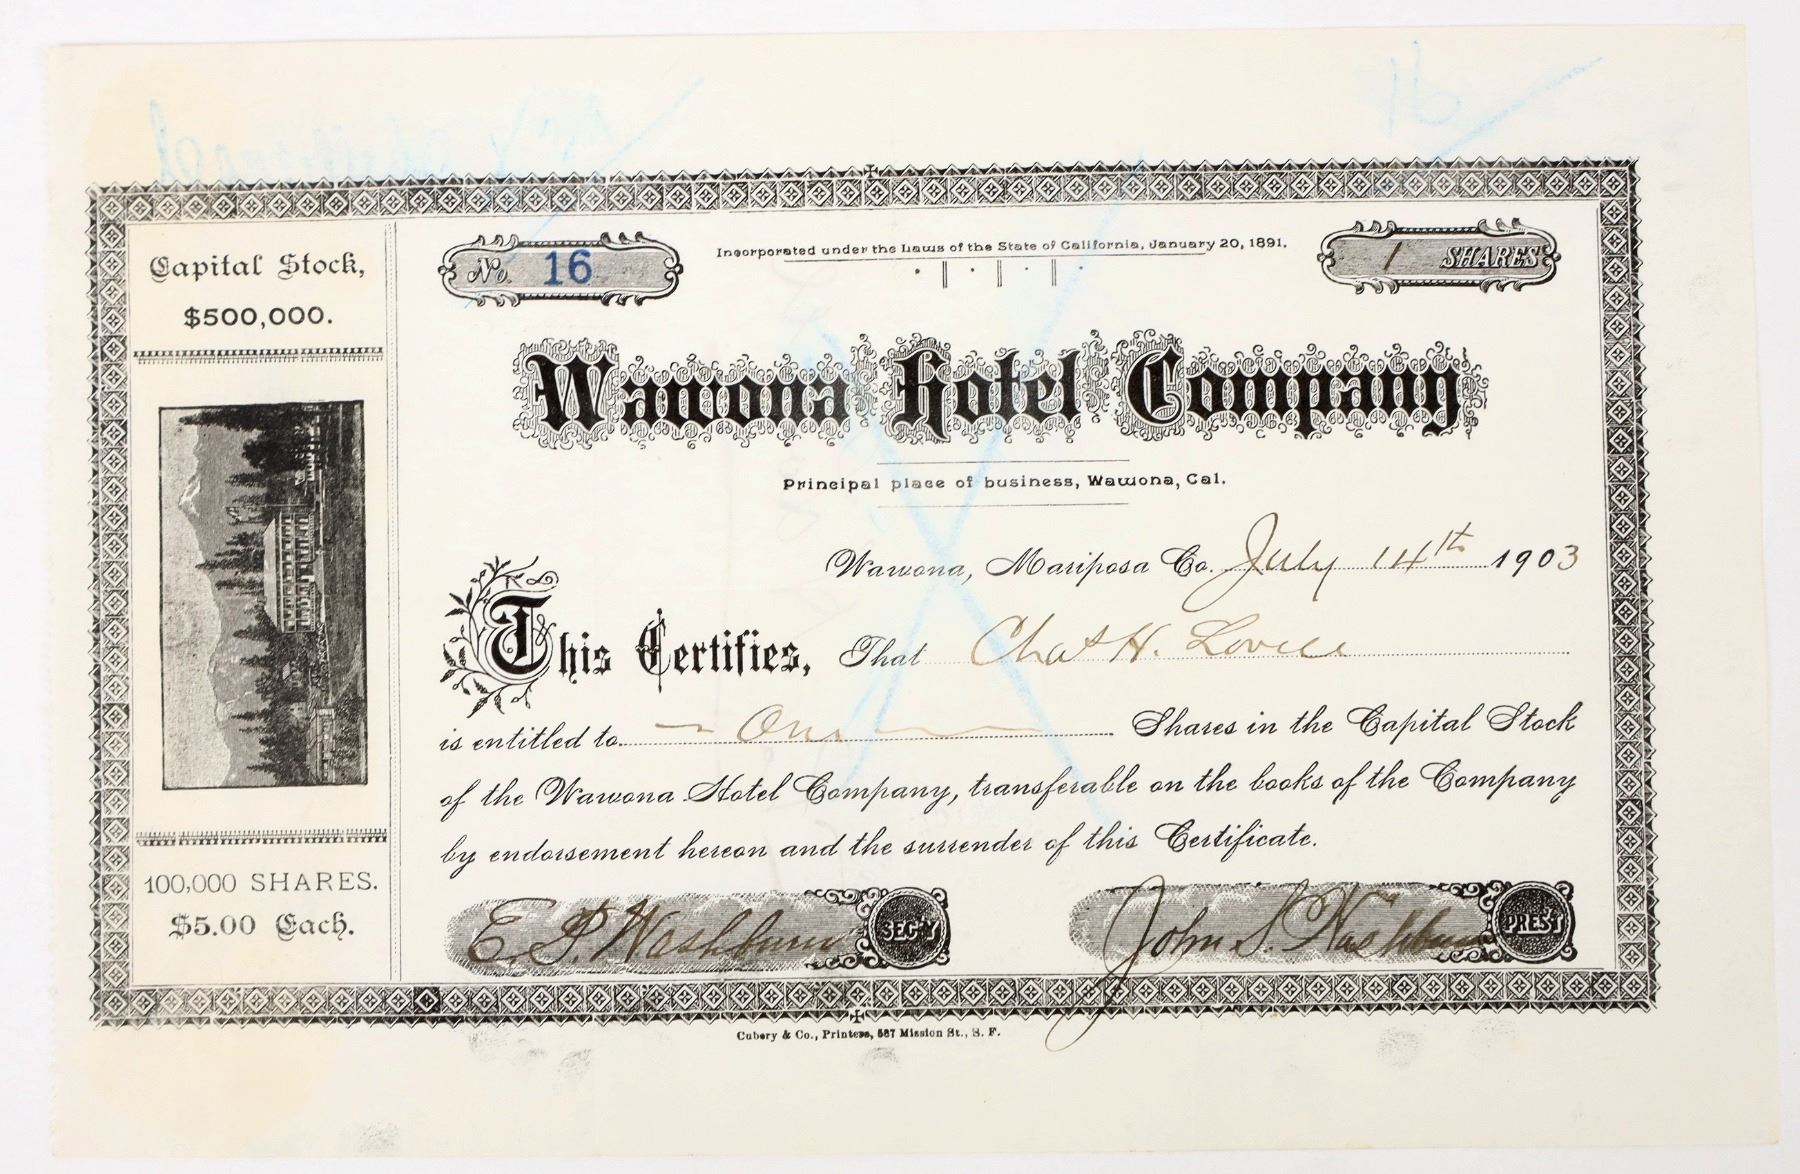 Capital Stock,
$500,000.
100,000 SHARES.
$5.00 Each.
No. 16
Incorporated under the Laws of the State of California, January 20, 1891.
1 SHARES
Wawona Hotel Company
Principal place of business, Wawona, Cal.
Wawona, Mariposa Co. July 14th 1903
This Certifies, That Chas H. Lovell
is entitled to One Shares in the Capital Stock
of the Wawona Hotel Company, transferable on the books of the Company
by endorsement hereon and the surrender of this Certificate.
E. P. Washburn SEC'Y
John S. Washburn PRES'T
Cubery & Co., Printers, 587 Mission St., S. F.